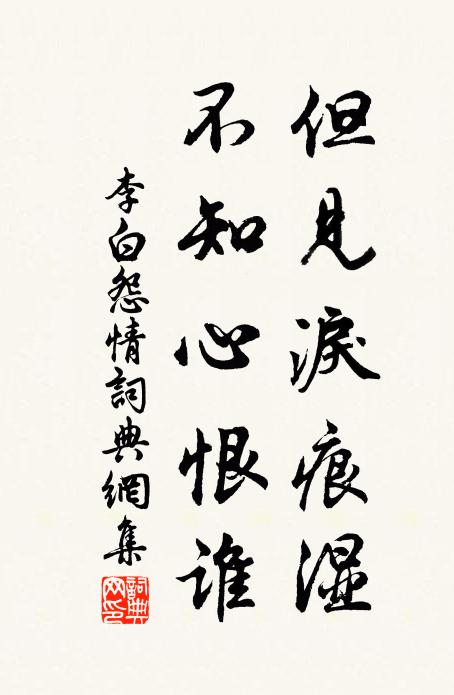 但見淚痕濕
不知心恨誰
李白怨情詞典網集
詞典网印